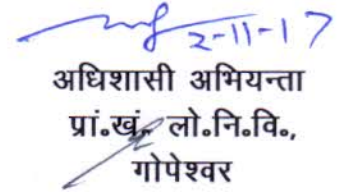 2-11-17
अधिशासी अभियन्ता
प्रां॰खं॰ लो॰नि॰वि॰,
गोपेश्वर